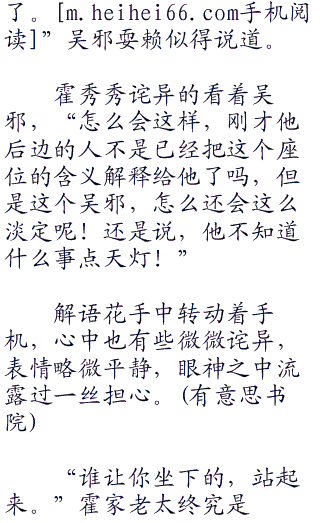 了。[m.heihei66.com手机阅
读]”吴邪耍赖似得说道。
霍秀秀诧异的看着吴
邪，“怎么会这样，刚才他
后边的人不是已经把这个座
位的含义解释给他了吗，但
是这个吴邪，怎么还会这么
淡定呢！还是说，他不知道
什么事点天灯！”
解语花手中转动着手
机，心中也有些微微诧异，
表情略微平静，眼神之中流
露过一丝担心。(有意思书
院)
“谁让你坐下的，站起
来。”霍家老太终究是